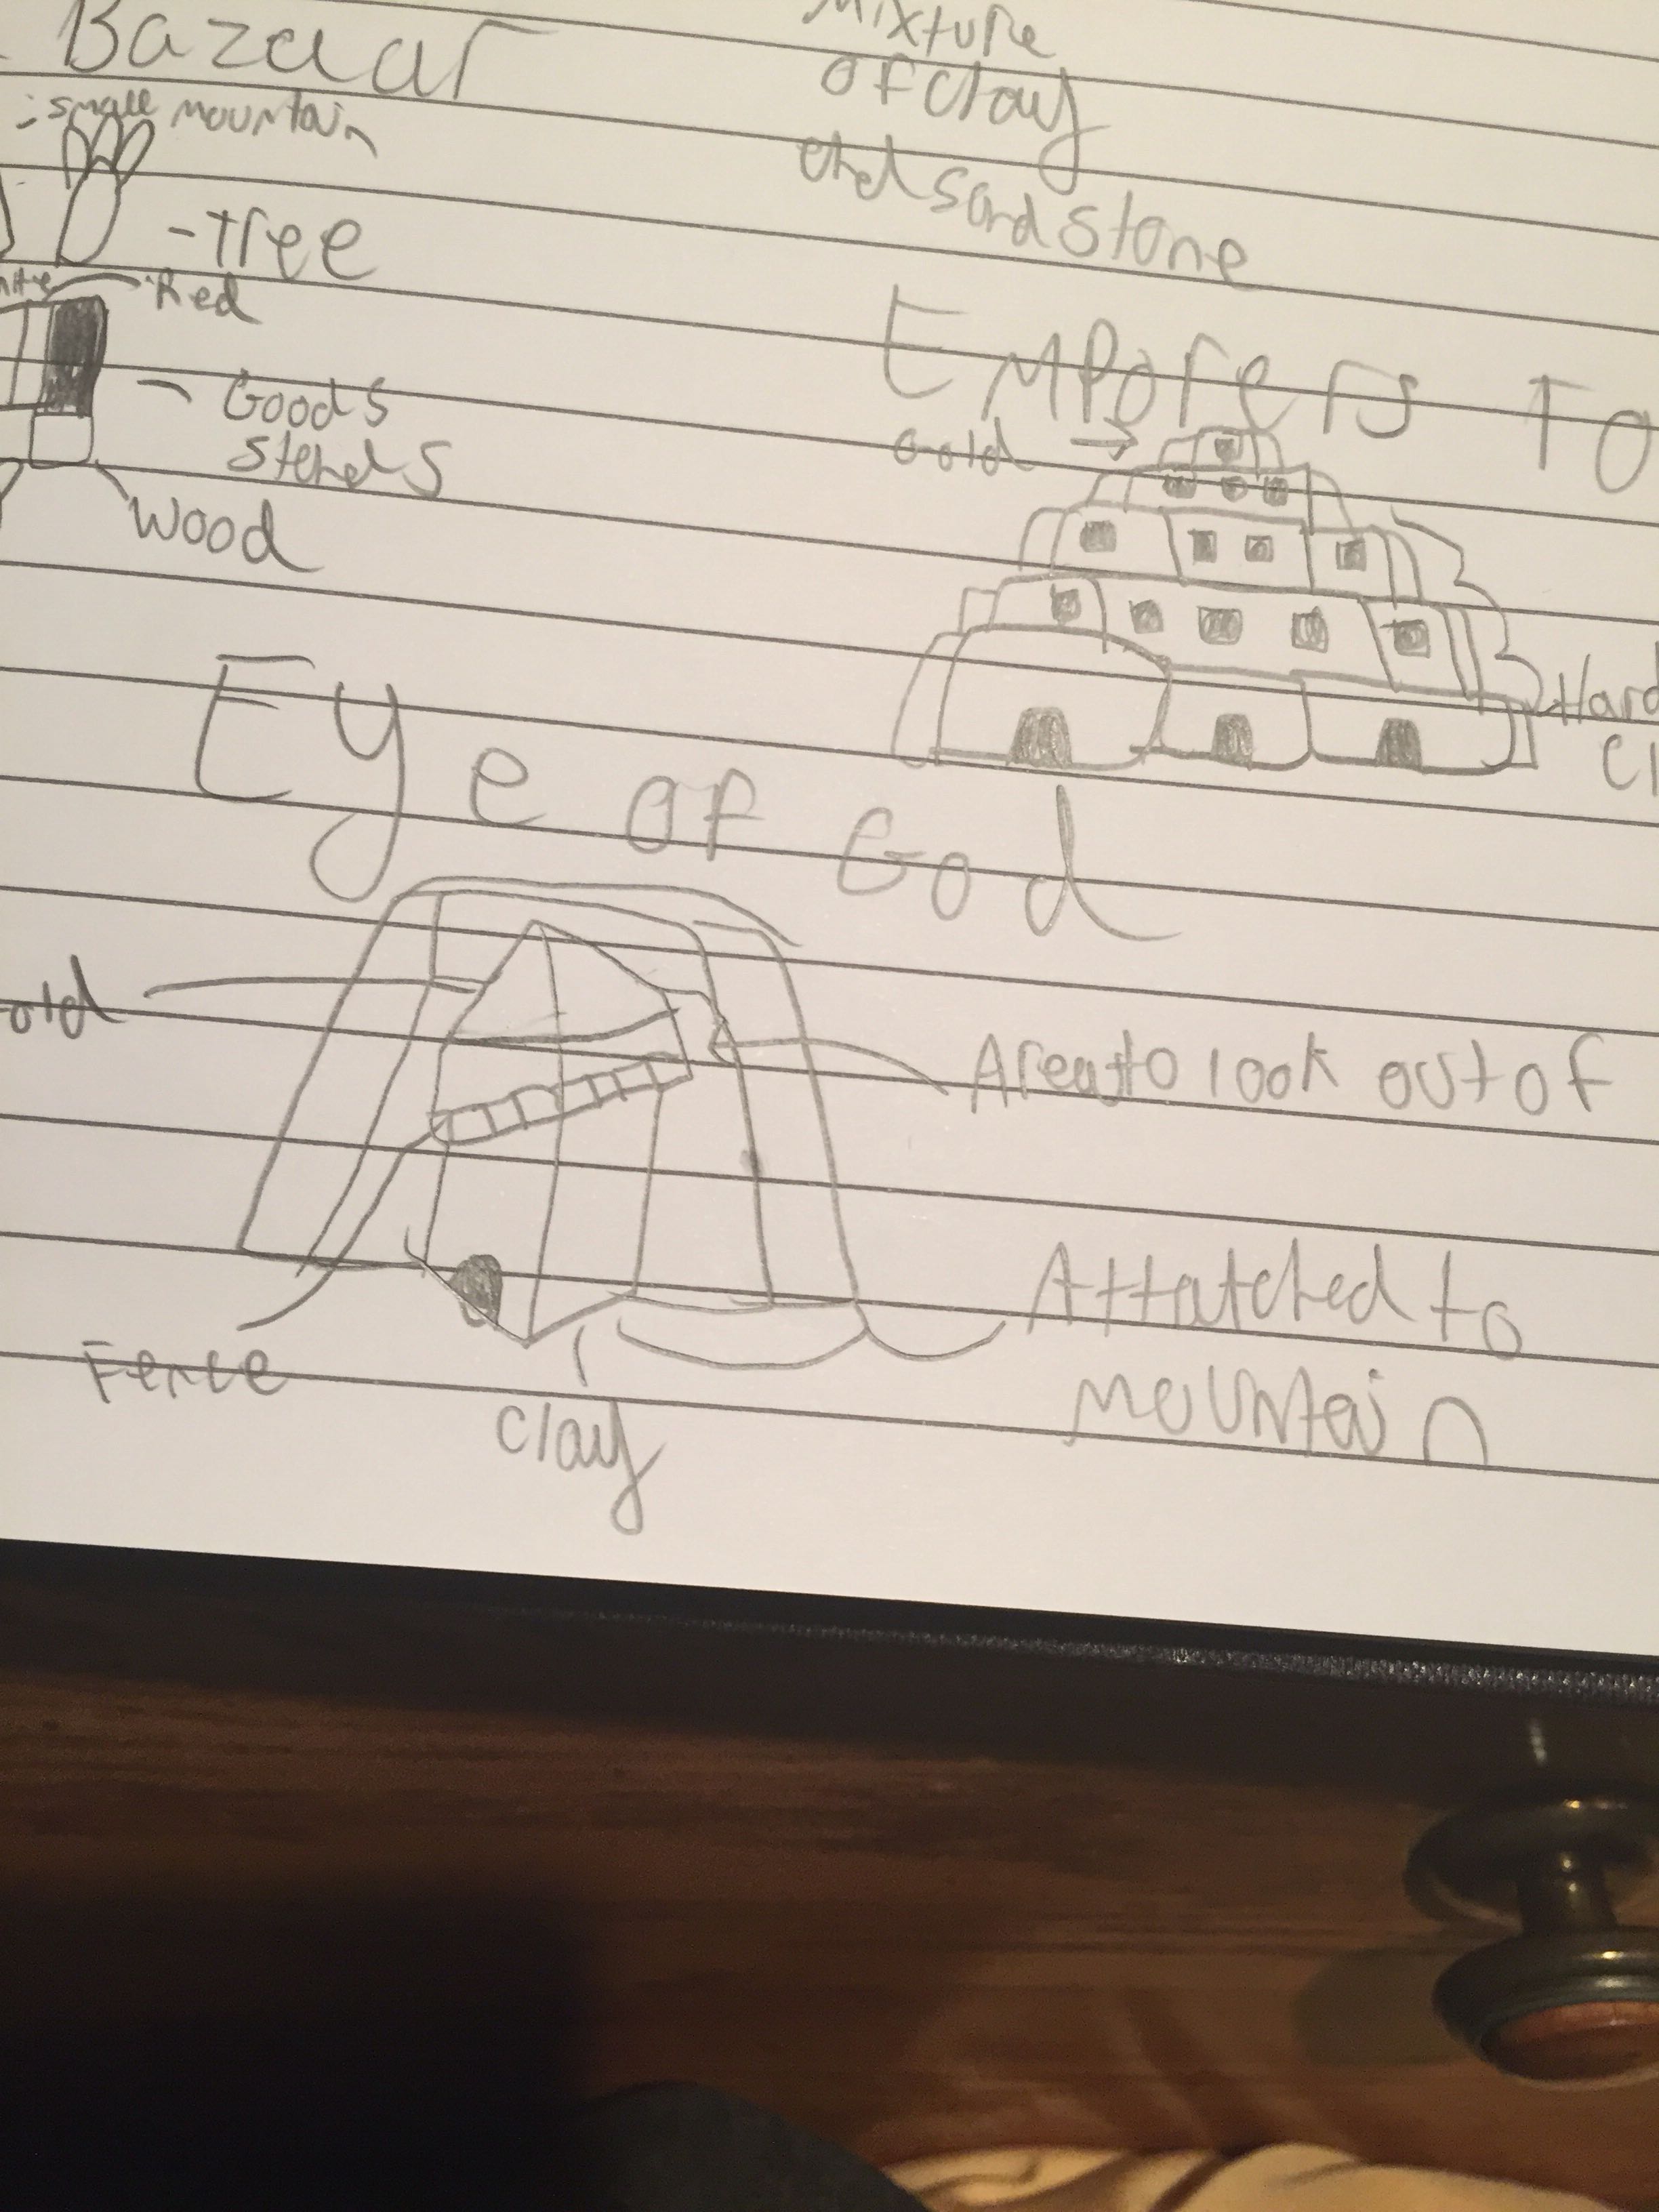 Bazaar
small mountain
-Tree
Red
- Goods
Stends
Wood
Mixture
of clay
and sandstone
Emporers To
Gold →
Hard
Cl
Eye of God
old
Area to look out of
Attatched to
mountain
Fence
clay